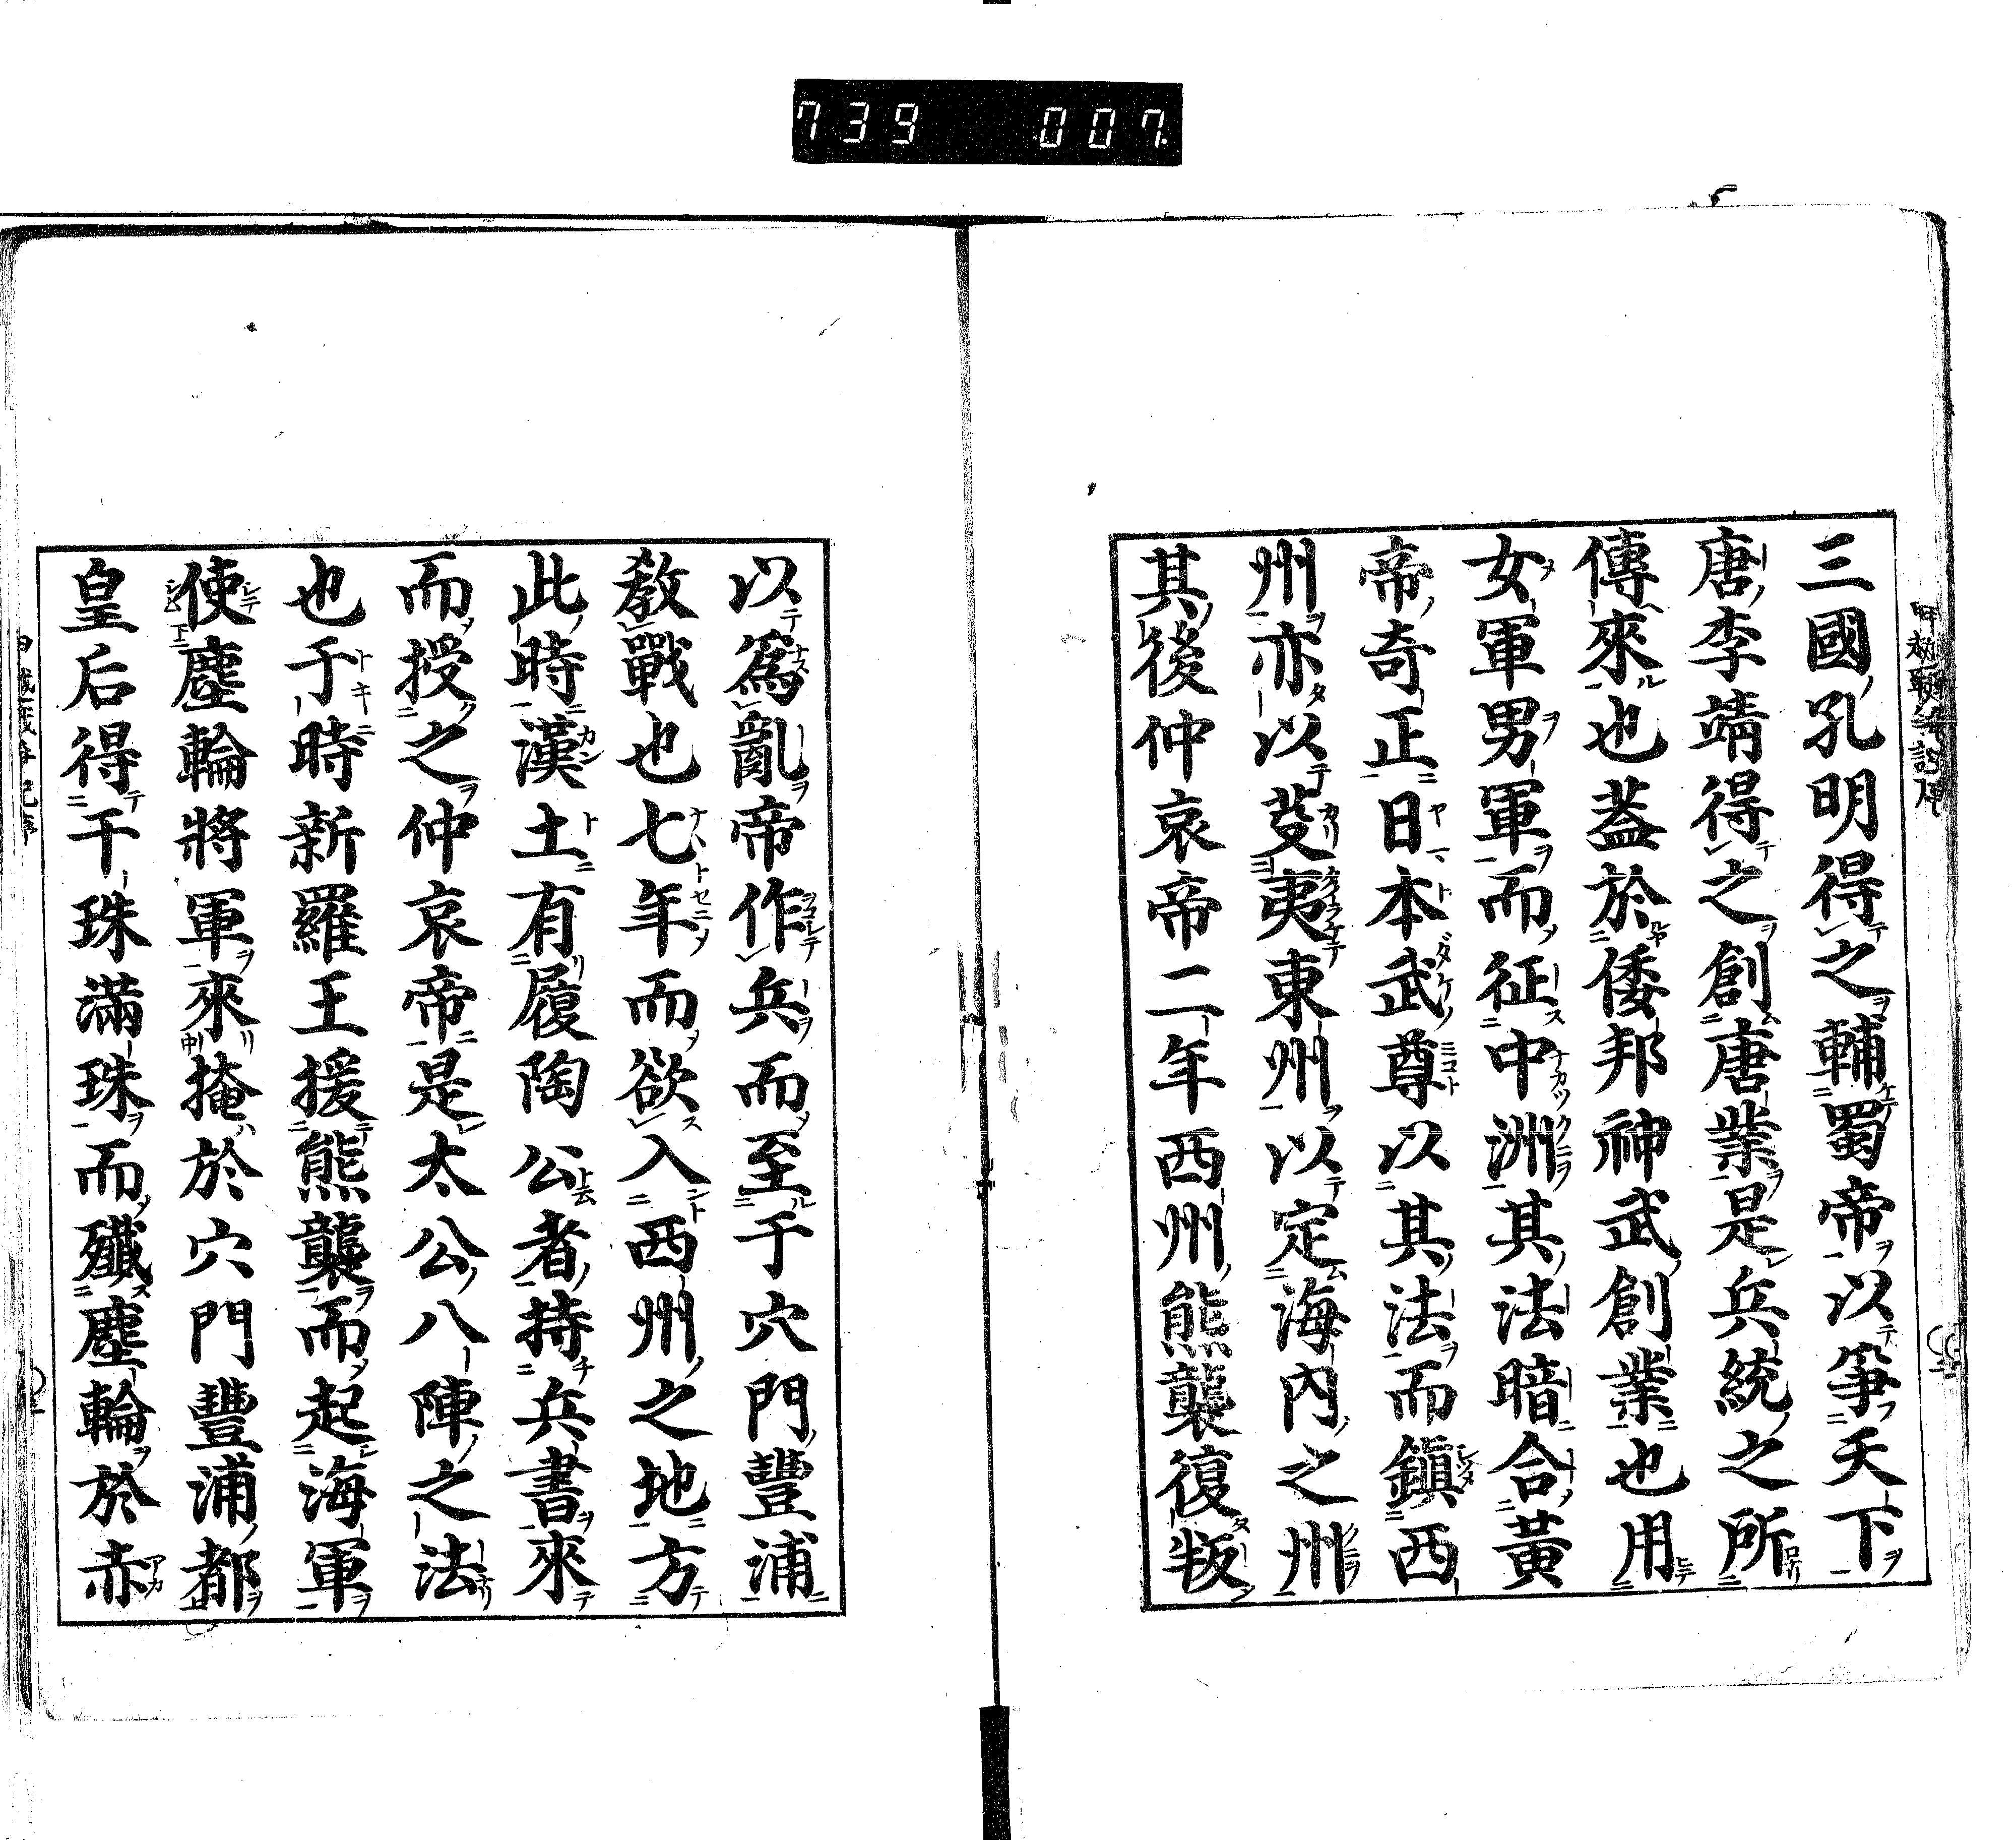 739 007.
三國孔明得之輔蜀帝以爭天下
唐李靖得之創唐業是兵統之所
傳來也葢於倭邦神武創業也用
女軍男軍而征中洲其法暗合黃
帝奇正日本武尊以其法而鎮西
州亦以芟夷東州以定海內之州
其後仲哀帝二年西州熊襲復叛
以爲亂帝作兵而至于穴門豐浦
敎戰也七年而欲入西州之地方
此時漢土有履陶公者持兵書來
而授之仲哀帝是太公八陣之法
也于時新羅王援熊襲而起海軍
使塵輪將軍來掩於穴門豐浦都
皇后得干珠滿珠而殲塵輪於赤